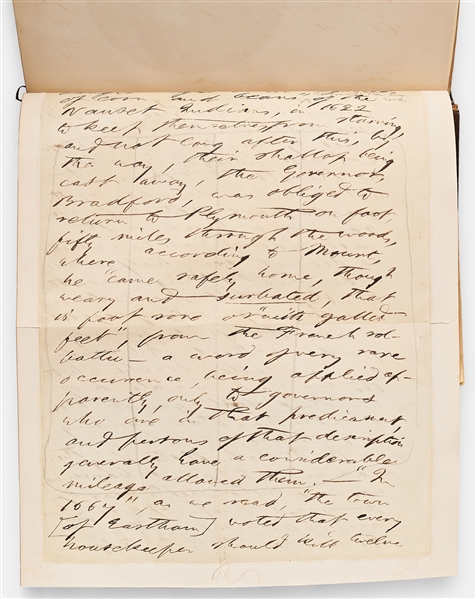 of corn and beans of the
Nauset Indians, in 1622
to keep themselves from starving
and not long after this, by
the way, their shallop being
cast away, the Governor,
Bradford, was obliged to
return to Plymouth on foot
fifty miles through the woods,
where according to Mount,
he "came safely home, though
weary and surbated, that
is foot sore or "with galled
feet", from the French sol-
battu — a word of very rare
occurrence, being applied ap-
parently, only to governors
who are in that predicament,
and persons of that description
generally have a considerable
mileage allowed them. — "In
1667", as we read, "the town
[of Eastham] voted that every
housekeeper should kill twelve